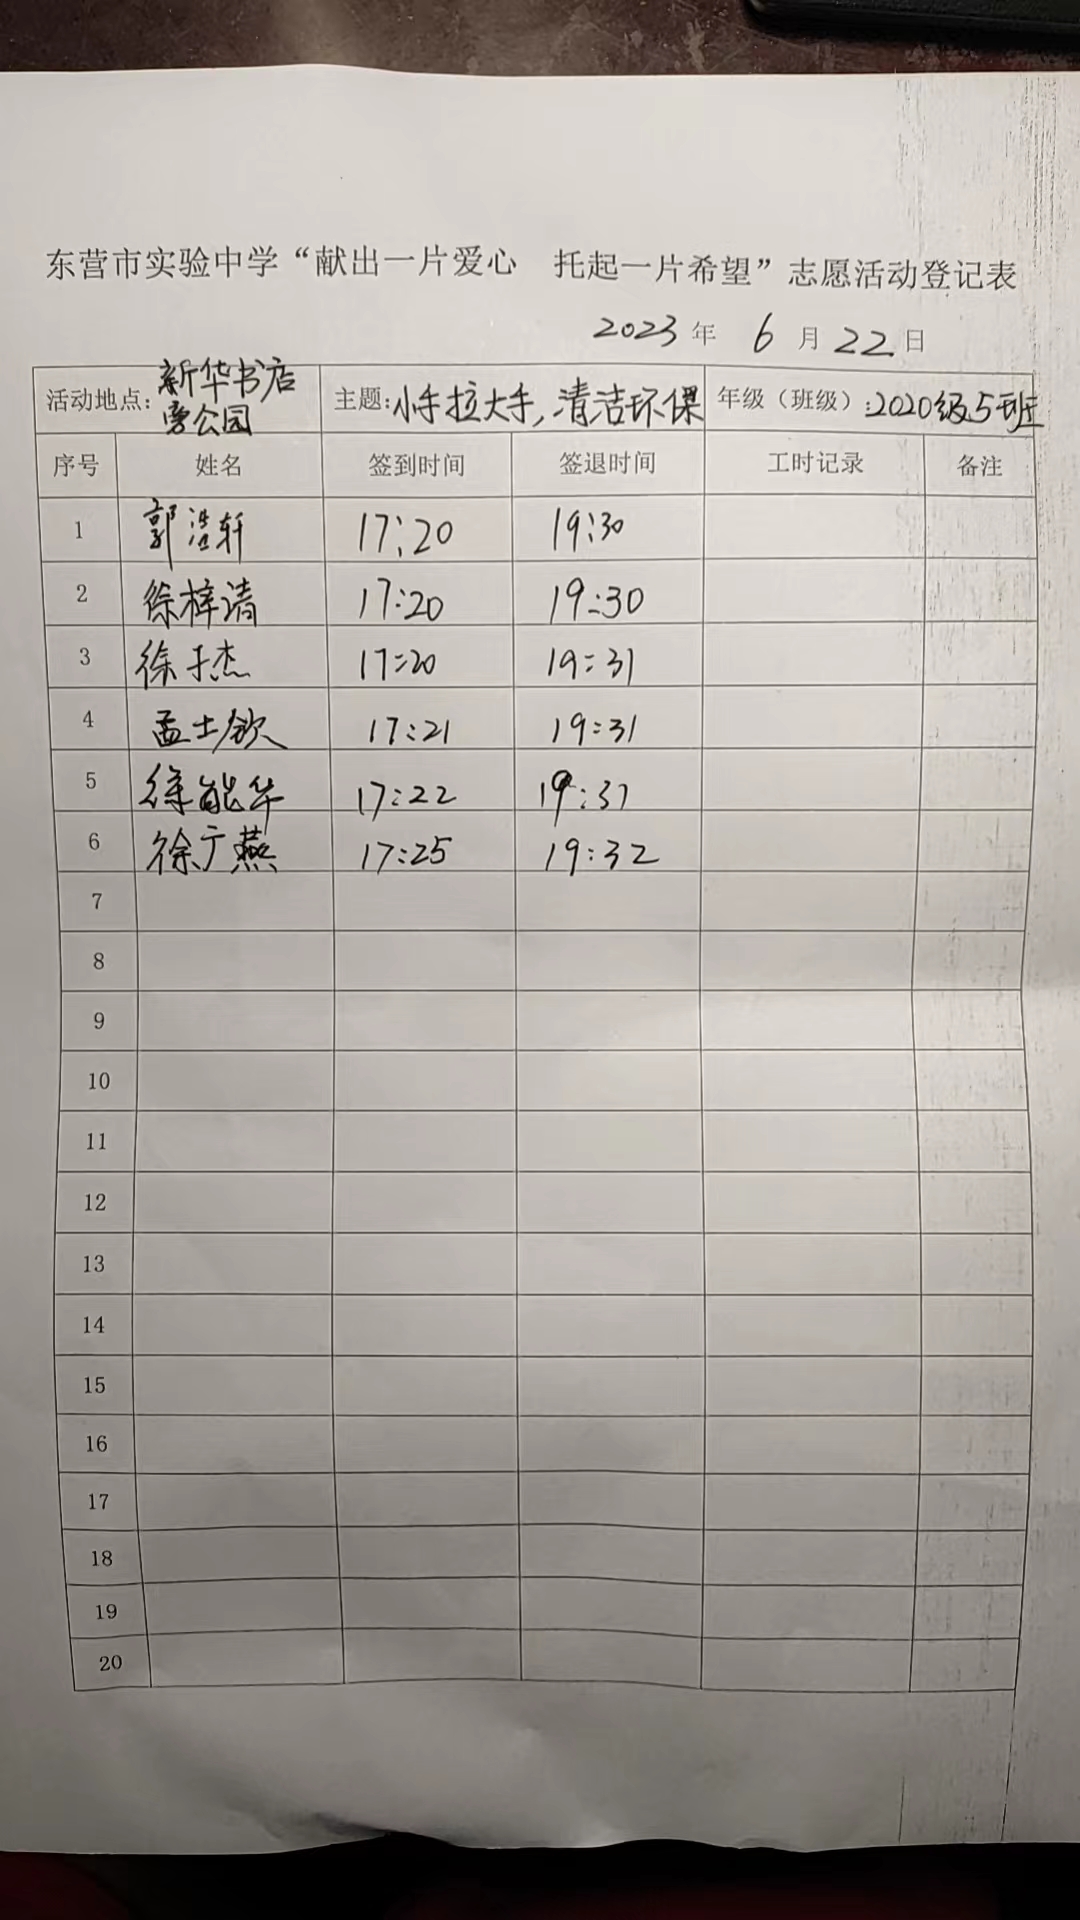 东营市实验中学“献出一片爱心 托起一片希望”志愿活动登记表
2023年 6月22日
活动地点:新华书店旁公园 主题:小手拉大手,清洁环保 年级（班级）:2020级5班
序号 姓名 签到时间 签退时间 工时记录 备注
1 郭浩轩 17:20 19:30
2 徐梓清 17:20 19:30
3 徐于杰 17:20 19:31
4 孟士钦 17:21 19:31
5 徐能华 17:22 19:31
6 徐广燕 17:25 19:32
7
8
9
10
11
12
13
14
15
16
17
18
19
20